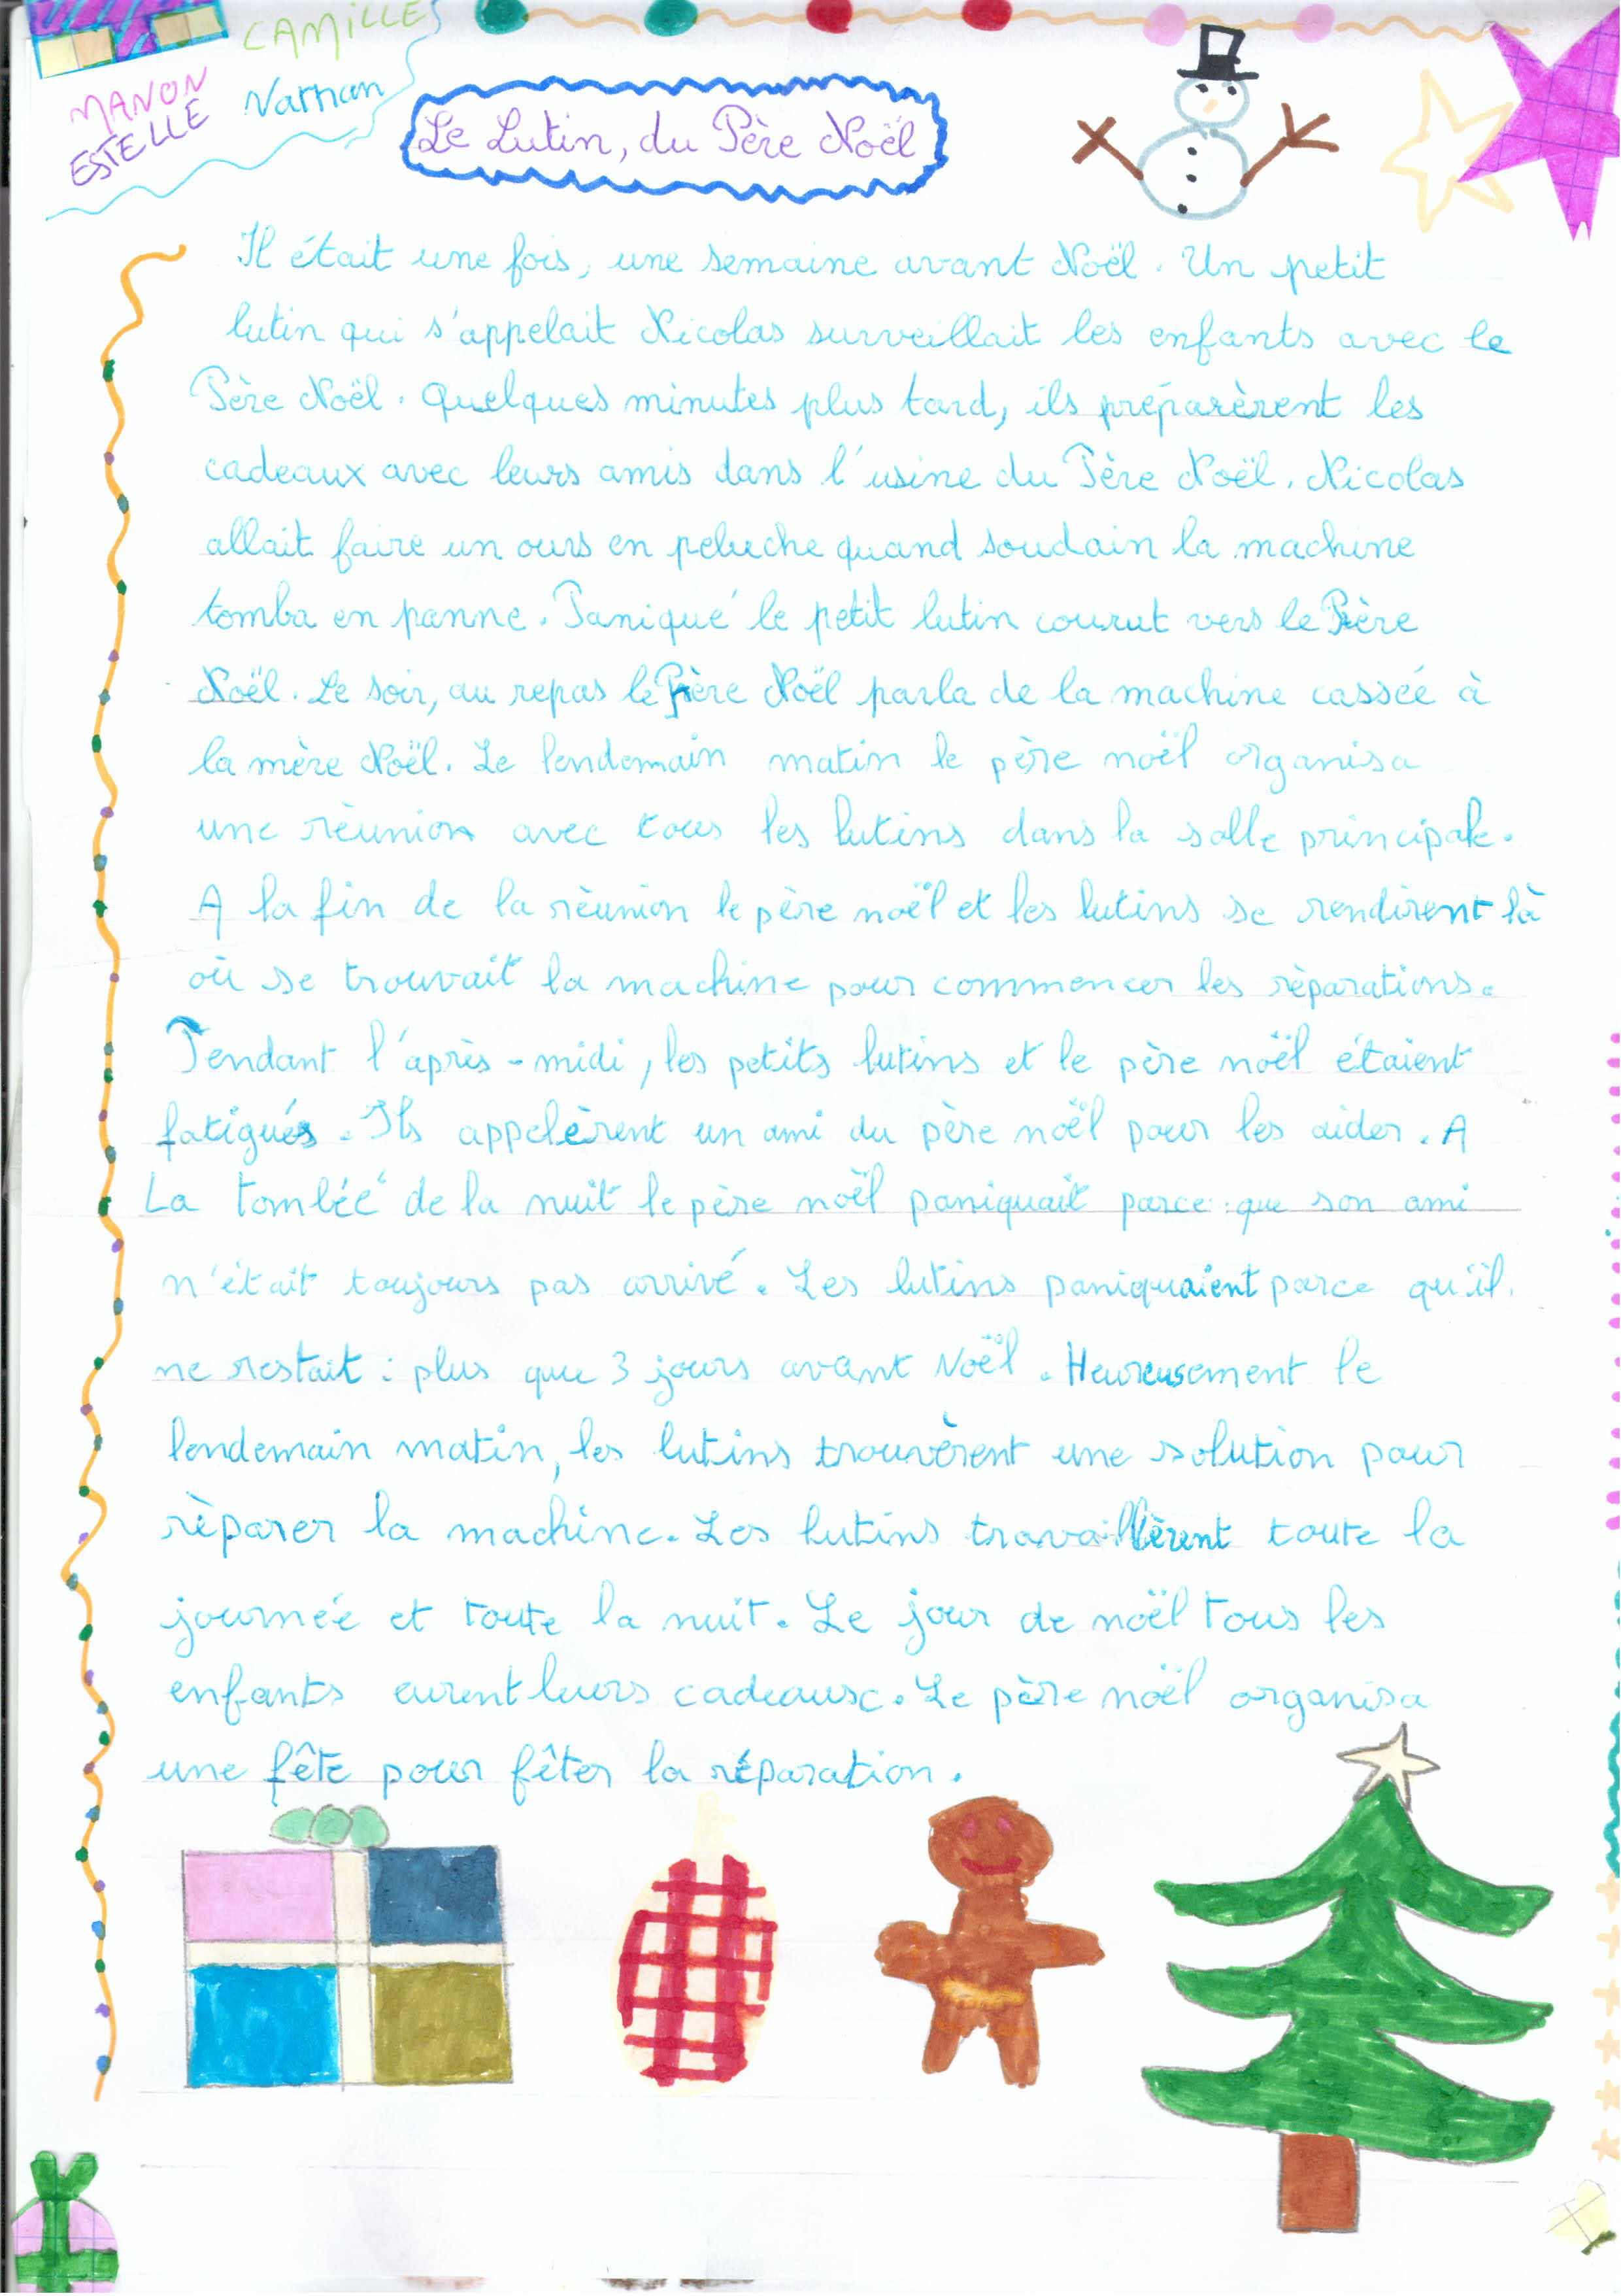 CAMILLE
MANON
Nathan
ESTELLE
Le Lutin, du Père Noël
Il était une fois, une semaine avant Noël. Un petit
lutin qui s'appelait Nicolas surveillait les enfants avec le
Père Noël. Quelques minutes plus tard, ils préparèrent les
cadeaux avec leurs amis dans l'usine du Père Noël. Nicolas
allait faire un ours en peluche quand soudain la machine
tomba en panne. Paniqué le petit lutin courut vers le Père
Noël. Le soir, au repas le Père Noël parla de la machine cassée à
la mère Noël. Le lendemain matin le père noël organisa
une rèunion avec tous les lutins dans la salle principale.
A la fin de la rèunion le père noël et les lutins se rendirent là
où se trouvait la machine pour commencer les rèparations.
Pendant l'après-midi, les petits lutins et le père noël étaient
fatigués. Ils appelèrent un ami du père noël pour les aider. A
La tombée de la nuit le père noël paniquait parce que son ami
n'était toujours pas arrivé. Les lutins paniquaient parce qu'il
ne restait : plus que 3 jours avant Noël. Heureusement le
lendemain matin, les lutins trouvèrent une solution pour
rèparer la machine. Les lutins travaillèrent toute la
journée et toute la nuit. Le jour de noël tous les
enfants eurent leurs cadeaux. Le père noël organisa
une fête pour fêter la réparation.